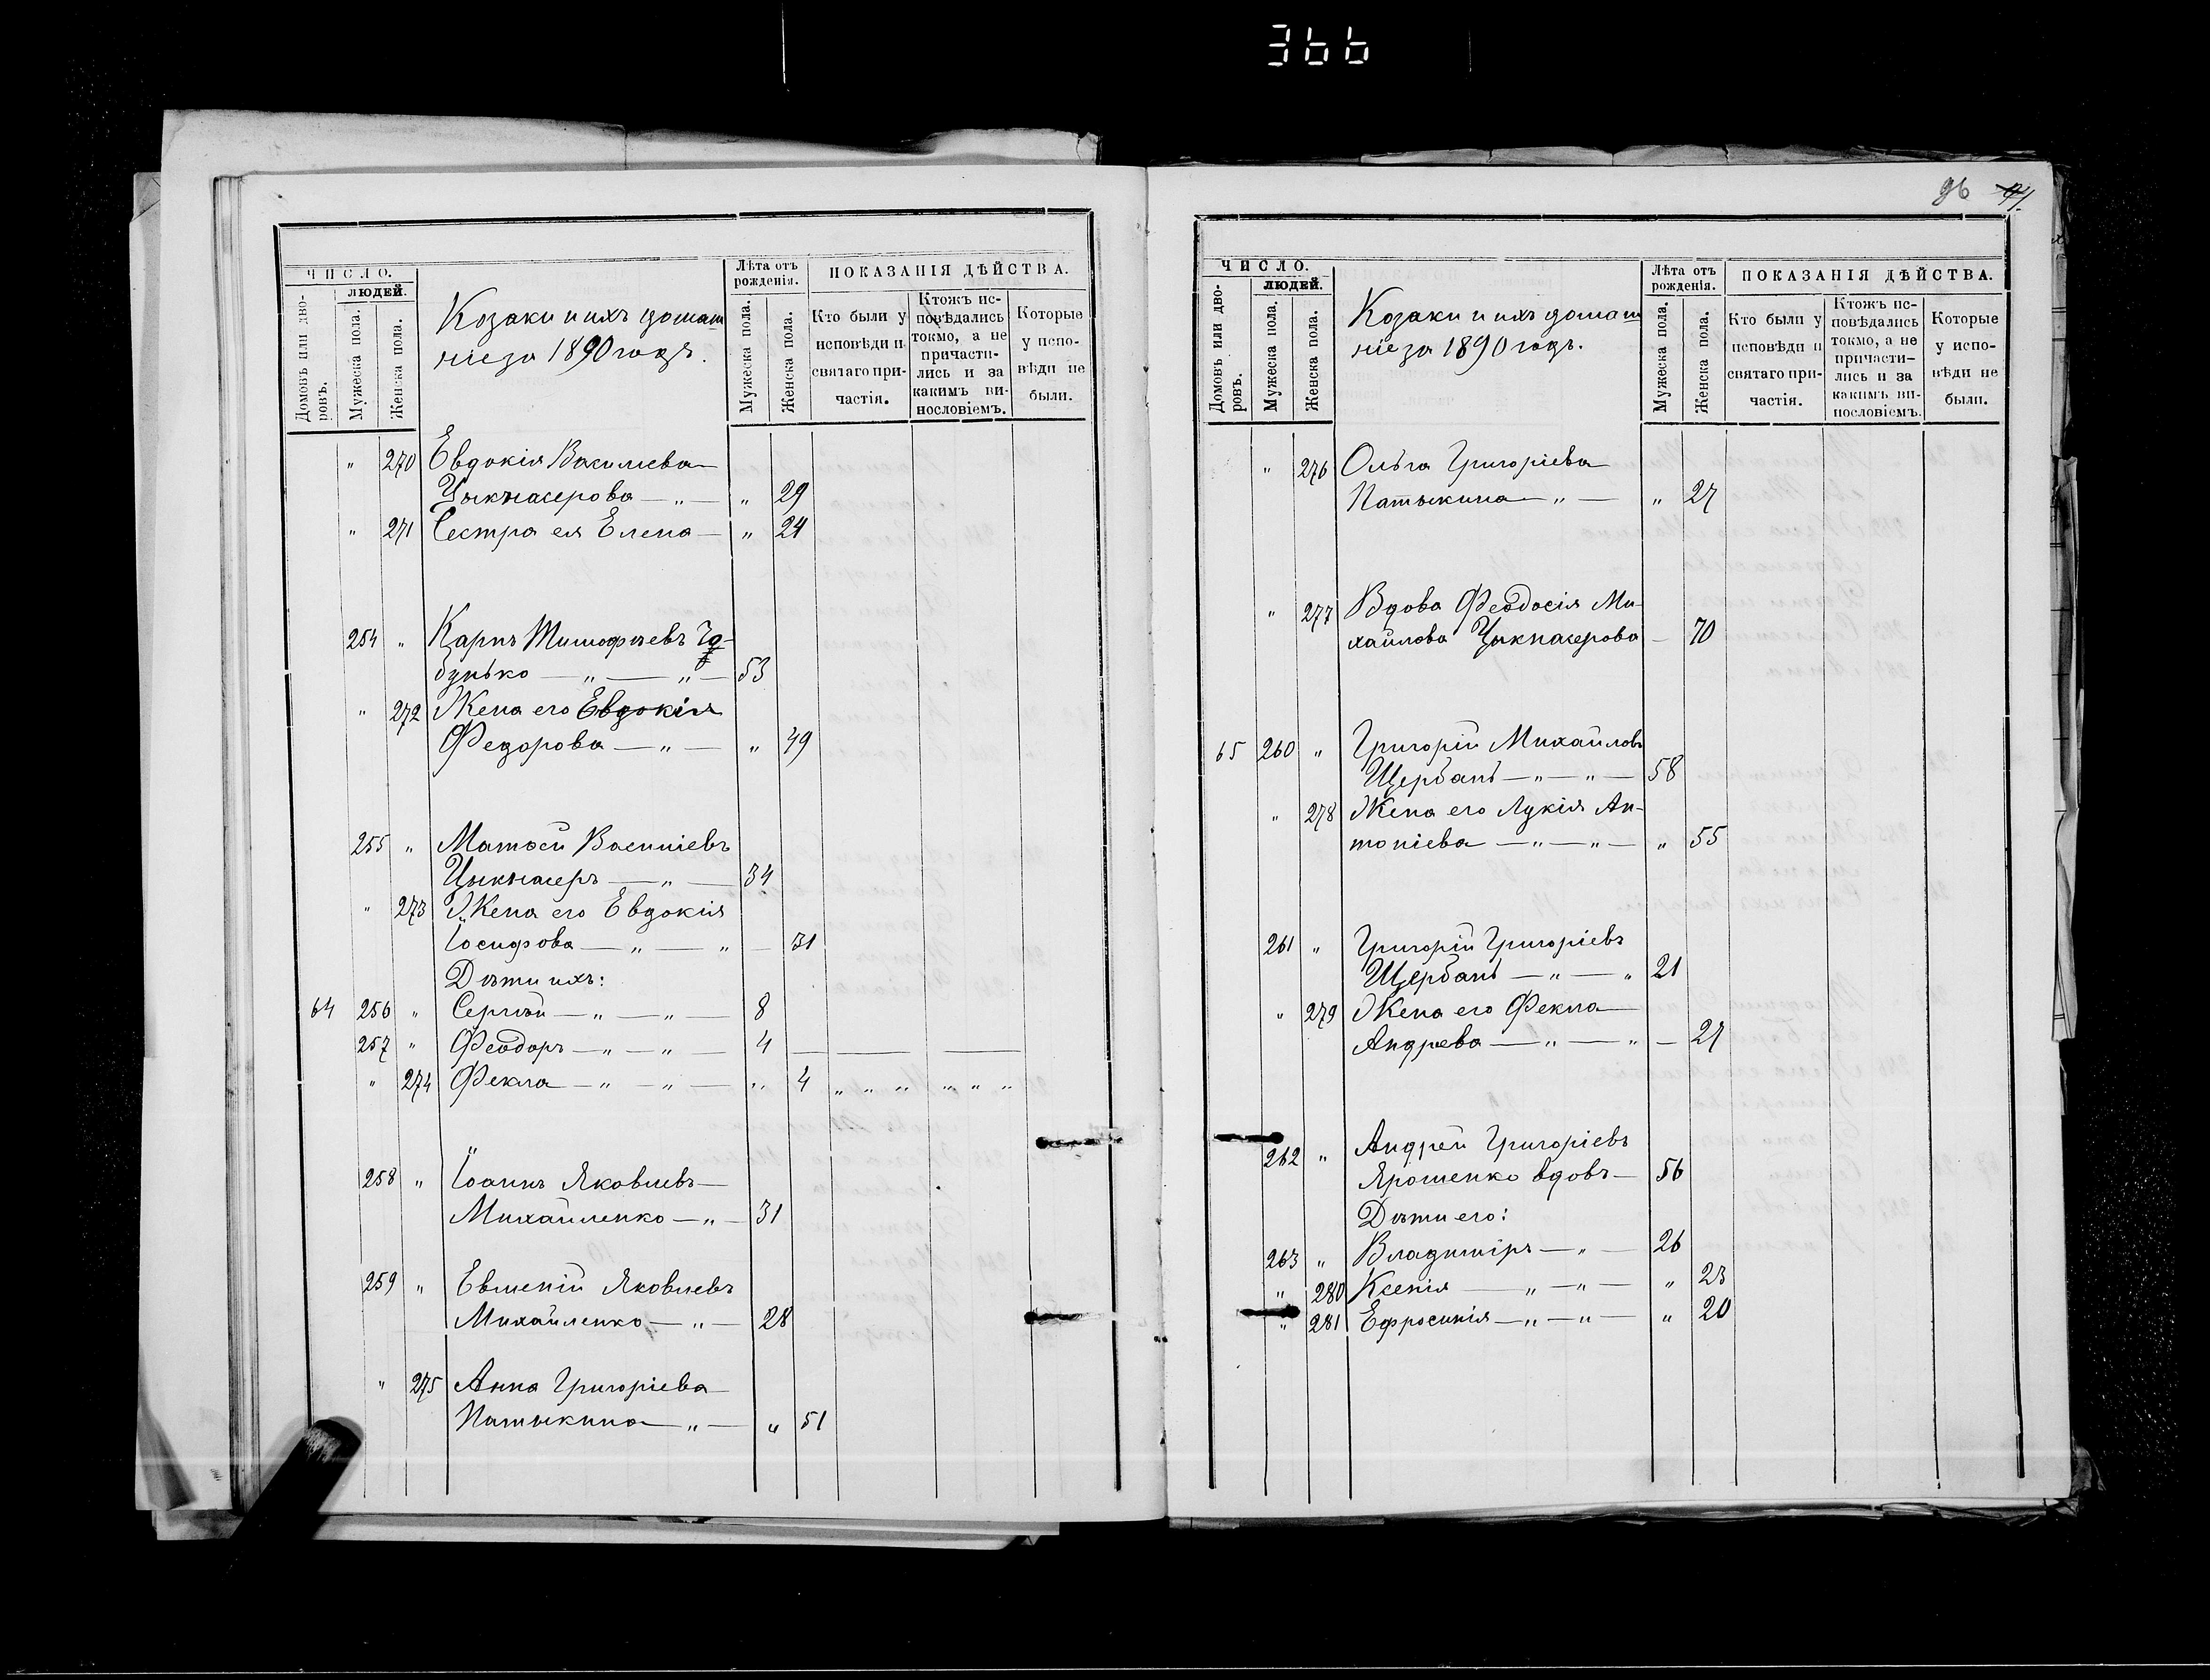 366
ЧИСЛО.
людей.
Домовъ или дво-
ровъ.
Мужеска пола.
Женска пола.
Козаки и ихъ домаш
ніе за 1890 годъ.
Лѣта отъ
рожденія.
Мужеска пола.
Женска пола.
ПОКАЗАНІЯ ДѢЙСТВА.
Кто были у
исповѣди и
святаго при-
частія.
Ктожъ ис-
повѣдались
токмо, а не
причасти-
лись и за
какимъ ви-
нословіемъ.
Которые
у испо-
вѣди не
были.
" 270 Евдокія Василіева
— " — " 29
" 271 Сестра ея Елена — " 24
254 " Карпъ Тимофѣевъ
бунько — " — " — 53
" 272 Жена его Евдокія
Федорова — " — " 49
255 " Матѳей Василіевъ
— " — 34
" 273 Жена его Евдокія
Іосифова — " — " — 31
Дѣти ихъ:
64 256 " Сергѣй — " — " — 8
257 " Феодоръ — " — " — 4 — — —
" 274 Фекла — " — " — " 4 " " " " " "
258 " Іоаннъ Яковлевъ —
Михайленко — " — 31
259 " Евменій Яковлевъ
Михайленко — " — 28
" 275 Анна Григоріева
Патыкина — " — " 51
96
ЧИСЛО.
людей.
Домовъ или дво-
ровъ.
Мужеска пола.
Женска пола.
Козаки и ихъ домаш
ніе за 1890 годъ.
Лѣта отъ
рожденія.
Мужеска пола.
Женска пола.
ПОКАЗАНІЯ ДѢЙСТВА.
Кто были у
исповѣди и
святаго при-
частія.
Ктожъ ис-
повѣдались
токмо, а не
причасти-
лись и за
какимъ ви-
нословіемъ.
Которые
у испо-
вѣди не
были.
" 276 Ольга Григоріева
Патыкина — " — " 27
" 277 Вдова Феодосія Ми-
хайлова — 70
65 260 " Григорій Михайловъ
Щербань — " — " — 58
" 278 Жена его Лукія Ан-
тоніева — " — " — " 55
261 " Григорій Григоріевъ
Щербань — " — " 21
" 279 Жена его Фекла
Андреева — " — " — 21
262 " Андрей Григоріевъ
Ярошенко вдовъ — 56
Дѣти его:
263 " Владиміръ — " — 26
" 280 Ксенія — " — " — " 23
" 281 Ефросинія — " — " — " 20